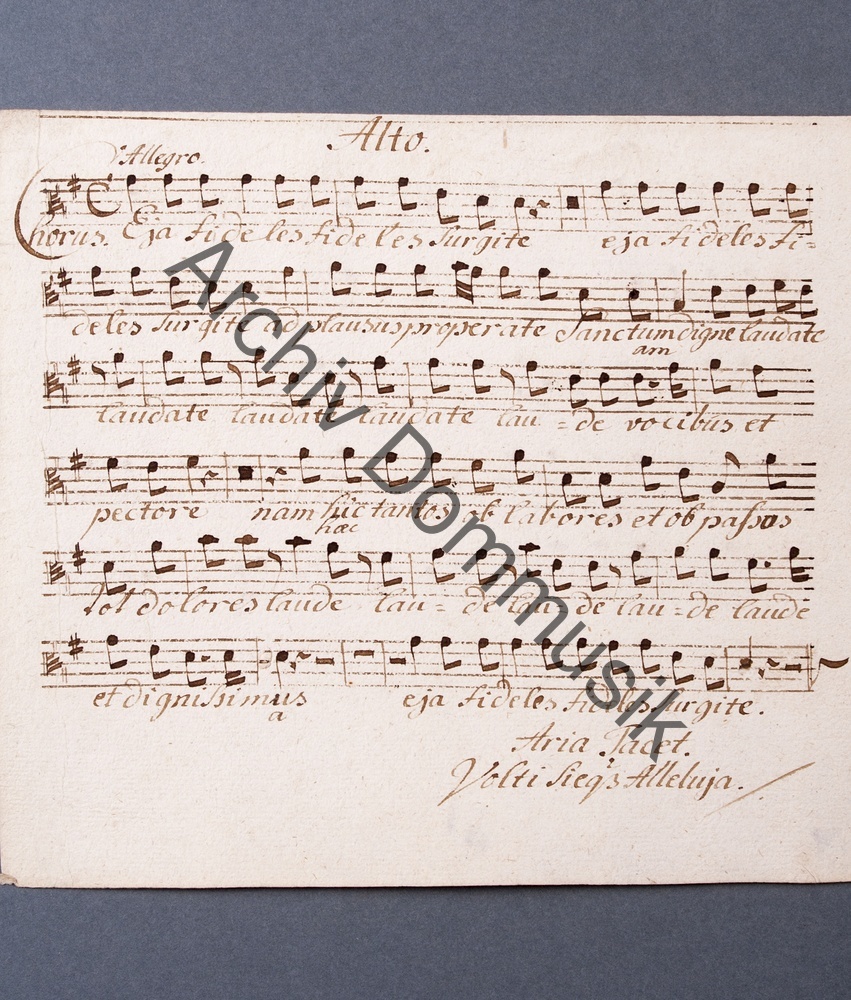 Alto.
Allegro.
Chorus. Eja fideles fideles surgite eja fideles fi=
deles surgite ad plausus properate Sanctum digne laudate
am
laudate laudate laudate lau = de vocibus et
pectore nam hic tantos ob labores et ob passos
haec
tot dolores laude lau = de lau = de lau = de laude
et dignissimus eja fideles fideles surgite.
a
Aria Tacet.
Volti sieq's Alleluja.
Archiv Dommusik